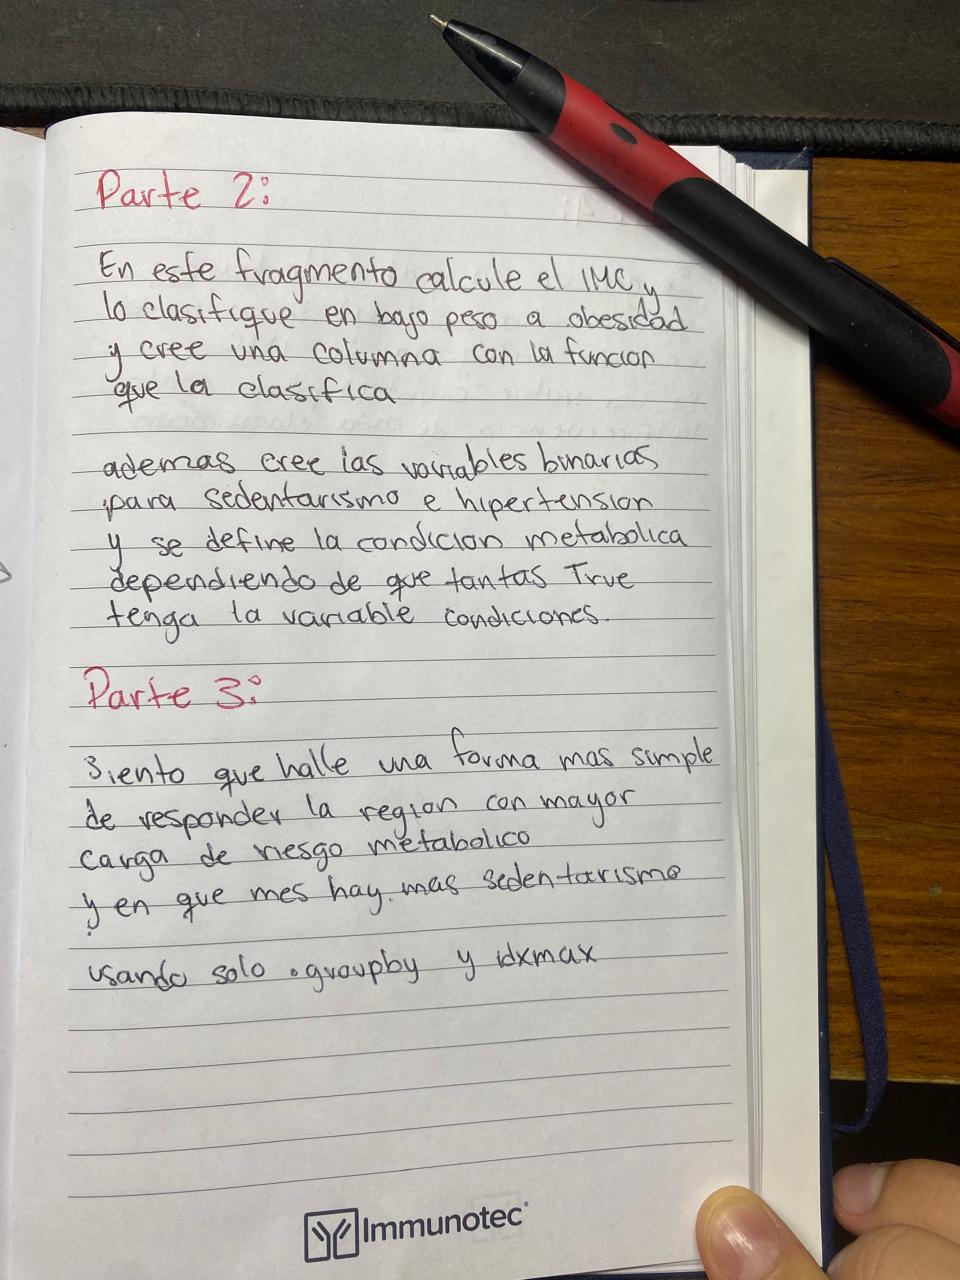 Parte 2:
En este fragmento calcule el IMC y
lo clasifique en bajo peso a obesidad
y cree una columna con la funcion
que la clasifica
ademas cree las variables binarias
para sedentarismo e hipertension
y se define la condicion metabolica
dependiendo de que tantas True
tenga la variable condiciones.
Parte 3:
Siento que halle una forma mas simple
de responder la region con mayor
carga de riesgo metabolico
y en que mes hay mas sedentarismo
usando solo .groupby y idxmax
Immunotec